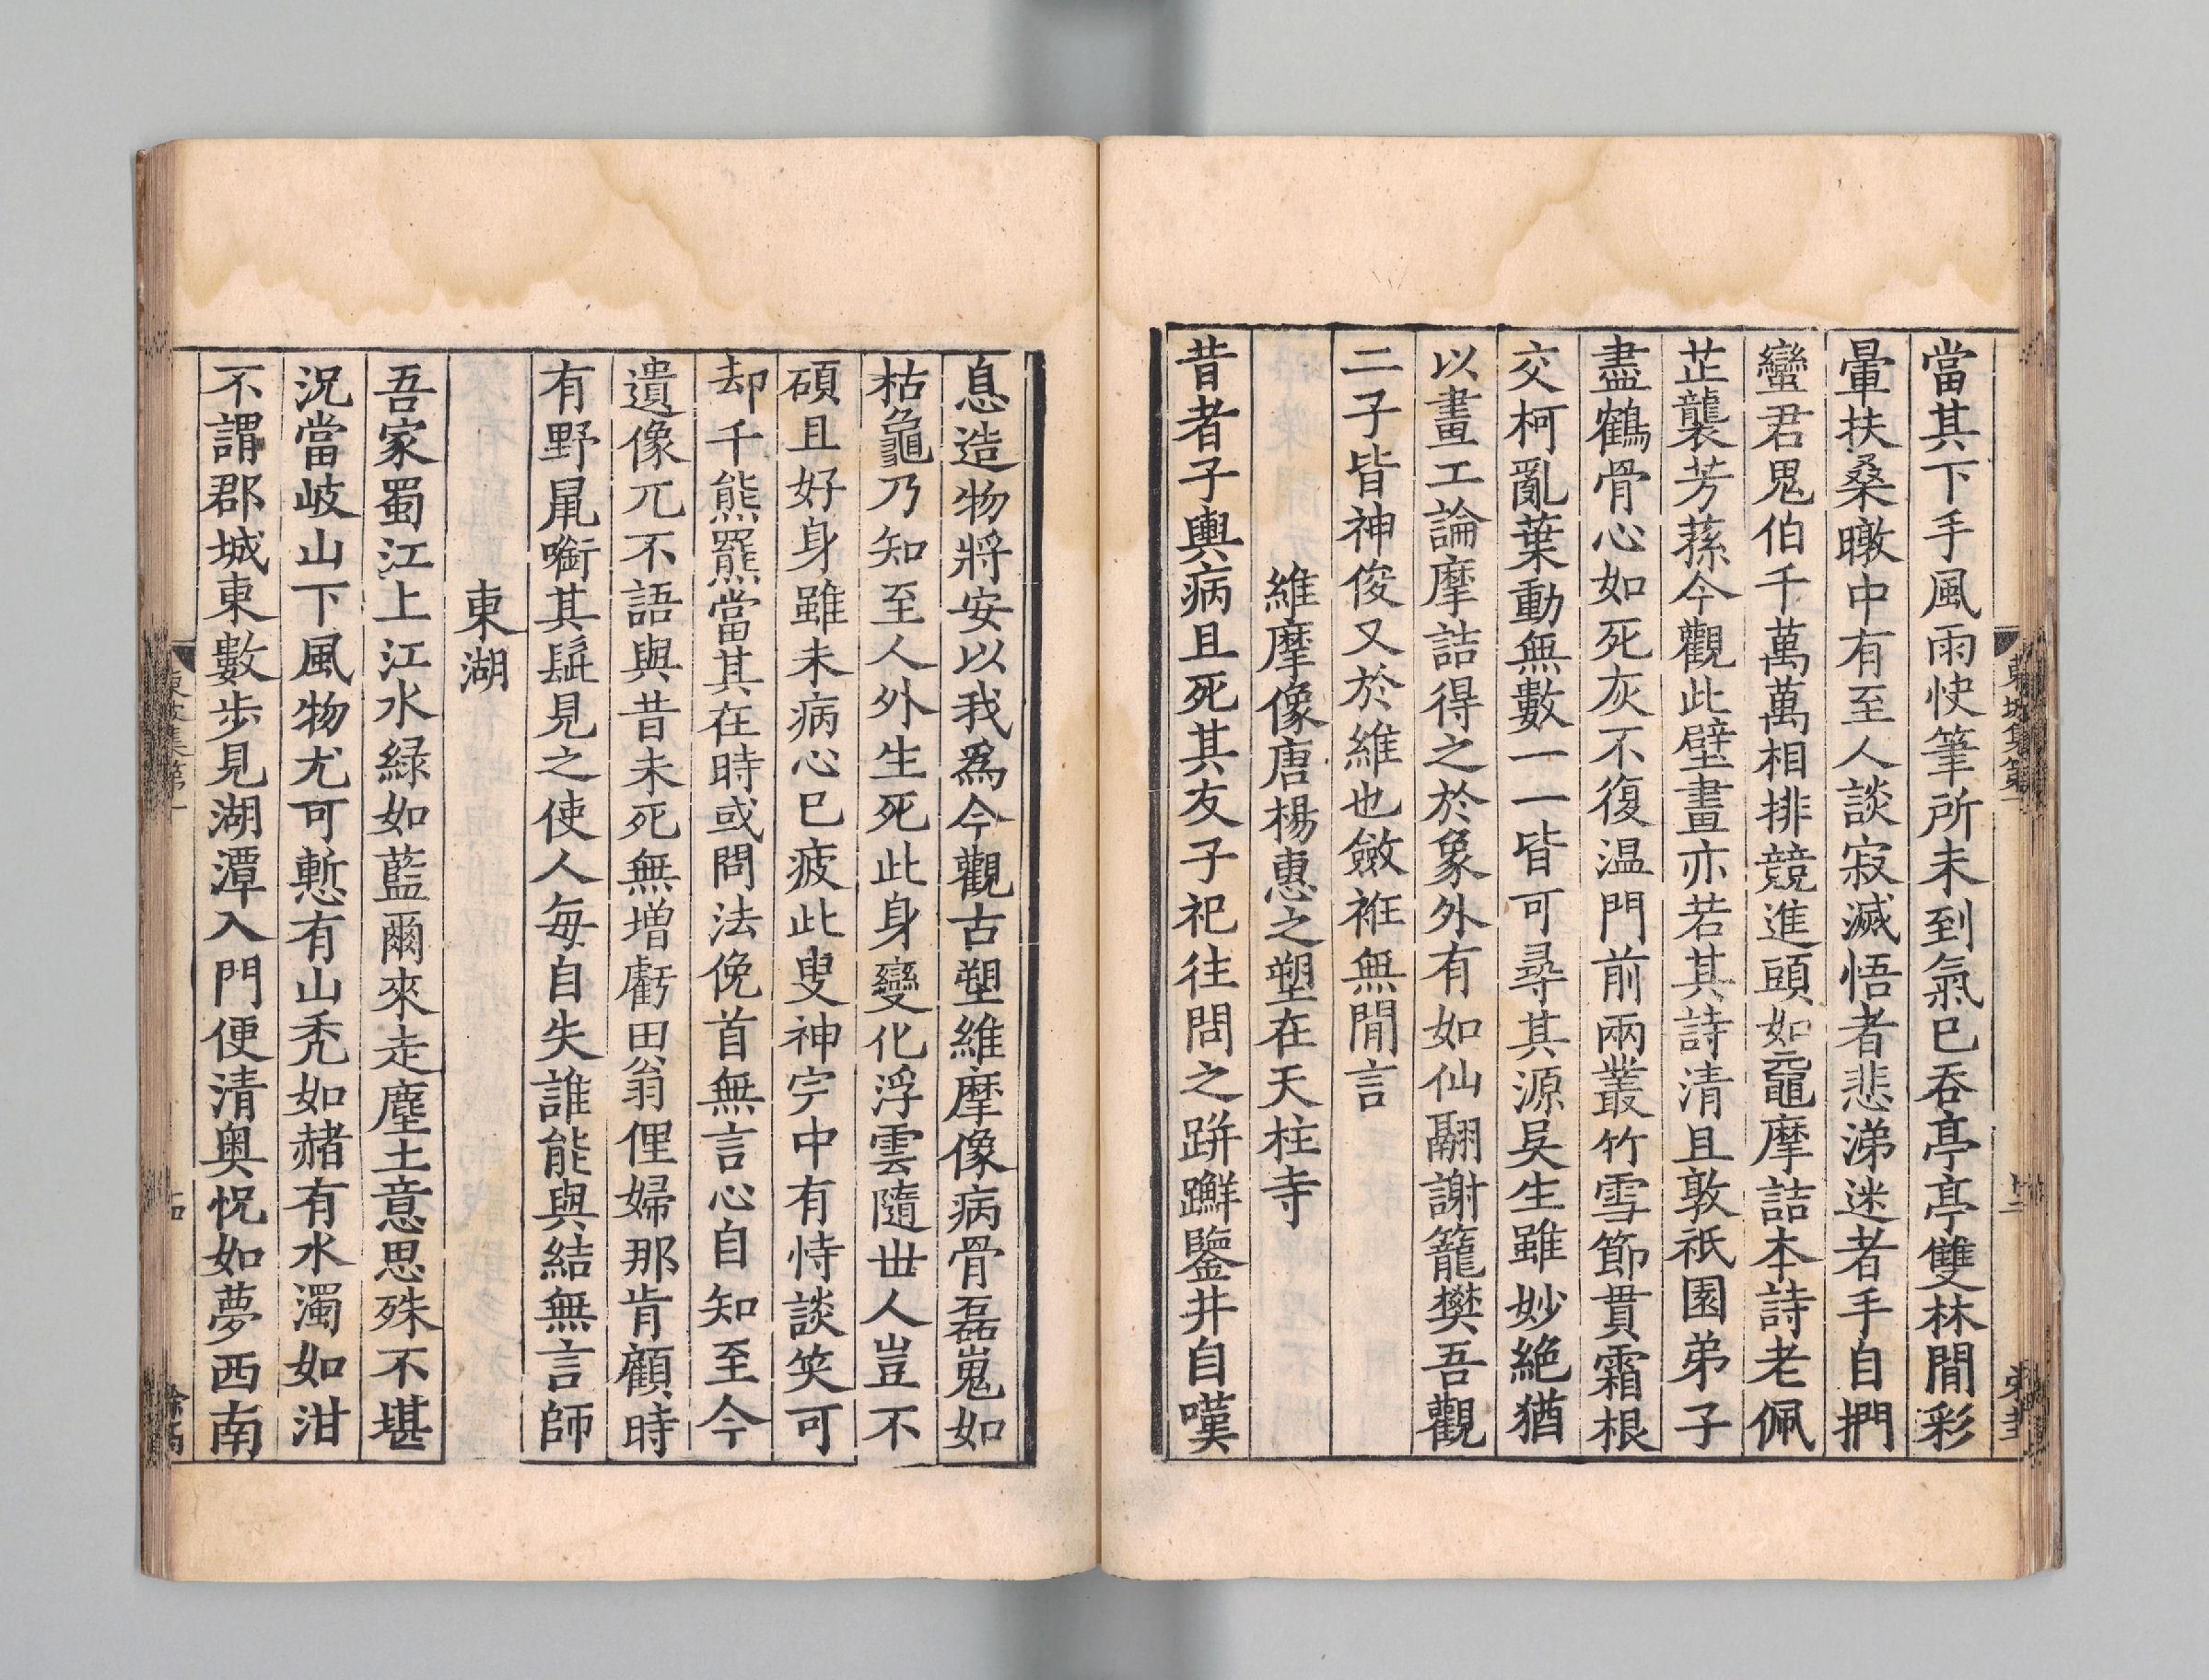 當其下手風雨快筆所未到氣已吞亭亭雙林間彩
暈扶桑暾中有至人談寂滅悟者悲涕迷者手自捫
蠻君鬼伯千萬萬相排競進頭如黿摩詰本詩老佩
芷襲芳蓀今觀此壁畫亦若其詩清且敦祇園弟子
盡鶴骨心如死灰不復温門前兩叢竹雪節貫霜根
交柯亂葉動無數一一皆可尋其源吳生雖妙絶猶
以畫工論摩詰得之於象外有如仙翮謝籠樊吾觀
二子皆神俊又於維也斂袵無間言
維摩像唐楊惠之塑在天柱寺
昔者子輿病且死其友子祀往問之跰𨇤鑒井自嘆
息造物將安以我爲今觀古塑維摩像病骨磊嵬如
枯龜乃知至人外生死此身變化浮雲隨世人豈不
碩且好身雖未病心已疲此叟神宇中有恃談笑可
却千熊羆當其在時或問法俛首無言心自知至今
遺像兀不語與昔未死無増虧田翁俚婦那肯顧時
有野鼠㗸其髭見之使人每自失誰能與結無言師
東湖
吾家蜀江上江水緑如藍爾來走塵土意思殊不堪
況當岐山下風物尤可慙有山禿如赭有水濁如泔
不謂郡城東數步見湖潭入門便清奥怳如夢西南
東坡集第一